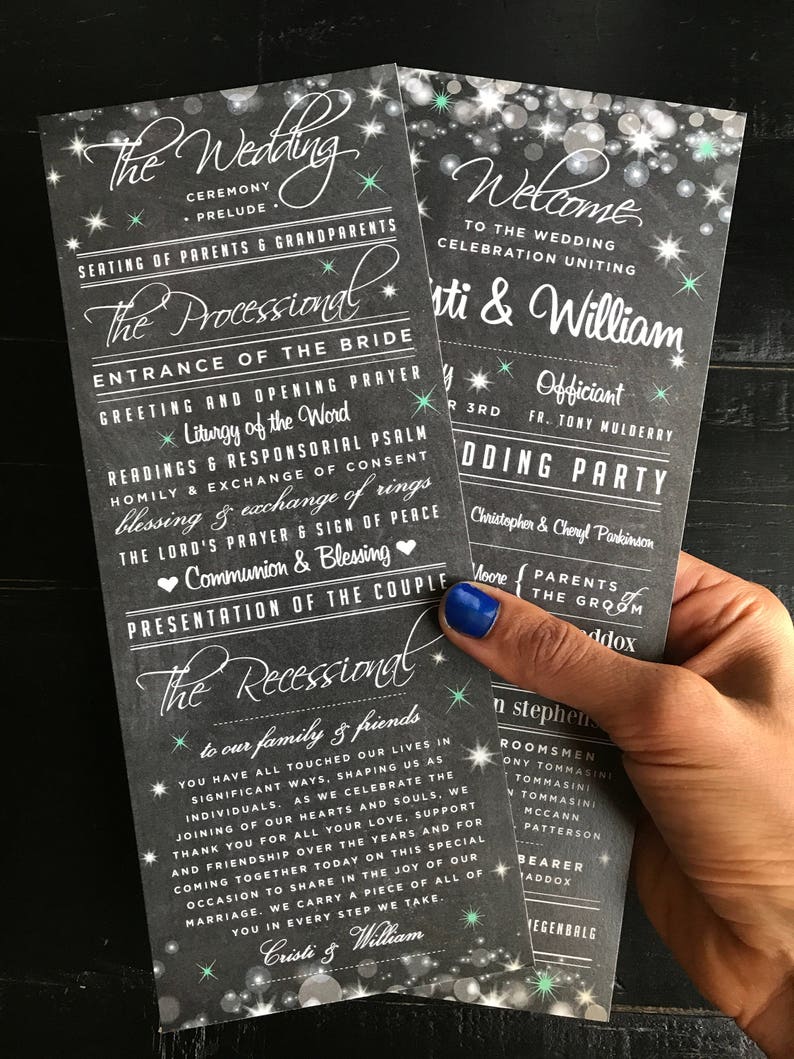 The Wedding
CEREMONY
• PRELUDE •
SEATING OF PARENTS & GRANDPARENTS
The Processional
ENTRANCE OF THE BRIDE
GREETING AND OPENING PRAYER
Liturgy of the Word
READINGS & RESPONSORIAL PSALM
HOMILY & EXCHANGE OF CONSENT
blessing & exchange of rings
THE LORD'S PRAYER & SIGN OF PEACE
Communion & Blessing
PRESENTATION OF THE COUPLE
The Recessional
to our family & friends
YOU HAVE ALL TOUCHED OUR LIVES IN
SIGNIFICANT WAYS, SHAPING US AS
INDIVIDUALS. AS WE CELEBRATE THE
JOINING OF OUR HEARTS AND SOULS, WE
THANK YOU FOR ALL YOUR LOVE, SUPPORT
AND FRIENDSHIP OVER THE YEARS AND FOR
COMING TOGETHER TODAY ON THIS SPECIAL
OCCASION TO SHARE IN THE JOY OF OUR
MARRIAGE. WE CARRY A PIECE OF ALL OF
YOU IN EVERY STEP WE TAKE.
Cristi & William
Welcome
TO THE WEDDING
CELEBRATION UNITING
sti & William
y
R 3RD
Officiant
FR. TONY MULDERRY
DDING PARTY
Christopher & Cheryl Parkinson
Moore { PARENTS of
THE GROOM
ddox
n stephens
ROOMSMEN
ONY TOMMASINI
TOMMASINI
N TOMMASINI
MCCANN
PATTERSON
BEARER
ADDOX
IEGENBALG